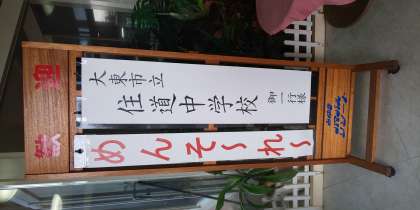 歓迎
大東市立
住道中学校 御一行様
めんそ〜れ〜